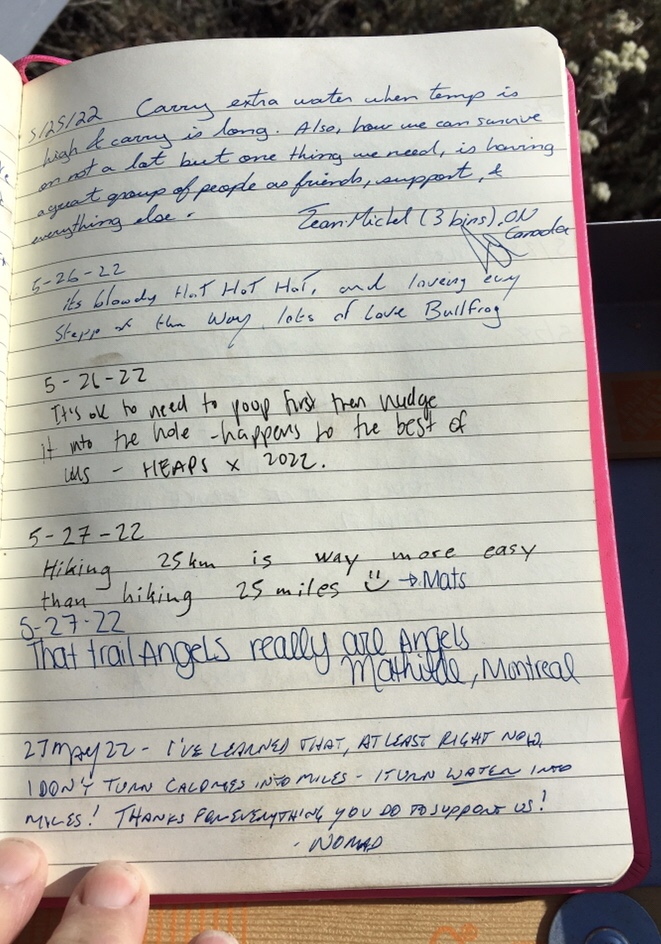 5/25/22 Carry extra water when temp is
high & carry is long. Also, how we can survive
on not a lot but one thing we need, is having
a great group of people as friends, support, &
everything else.
Jean-Michel (3 bips), ON
Canada
5-26-22
its bloody HOT HOT HOT, and loveing evry
Stepp of the Way, lots of Love Bullfrog
5-26-22
It's ok to need to poop first then nudge
it into the hole - happens to the best of
us - HEAPS x 2022.
5-27-22
Hiking 25km is way more easy
than hiking 25 miles → Mats
5-27-22
That trail Angels really are Angels
Mathilde, Montreal
27 May 22 - I'VE LEARNED THAT, AT LEAST RIGHT NOW,
I DON'T TURN CALORIES INTO MILES - I TURN WATER INTO
MILES! THANKS FOR EVERYTHING YOU DO TO SUPPORT US!
- NOMAD